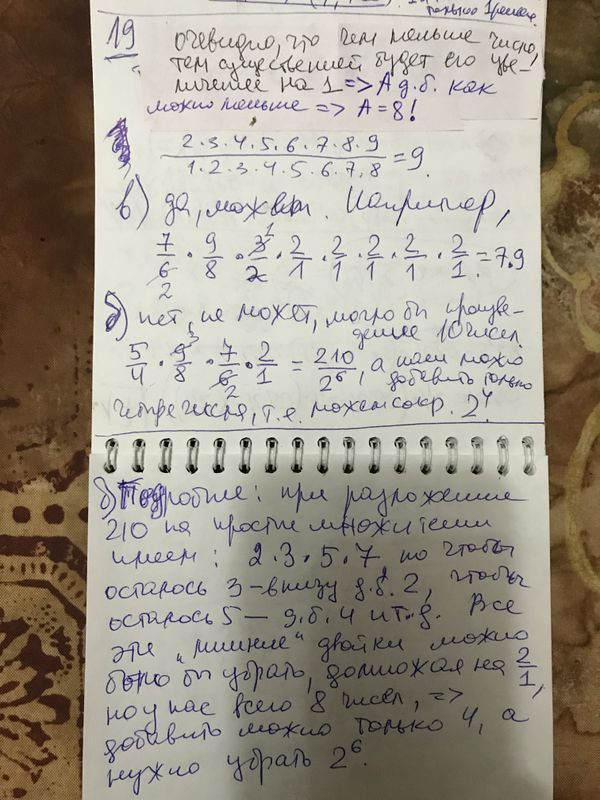 только 1 решение.
19
очевидно, что чем меньше число,
тем существенней будет его уве-
личение на 1 => А д.б. как
можно меньше => А = 8!
2·3·4·5·6·7·8·9 / 1·2·3·4·5·6·7·8 = 9.
в) да, может. Например,
7/6 · 9/8 · 3/2 · 2/1 · 2/1 · 2/1 · 2/1 · 2/1 = 7·9
2 1
б) нет, не может, могло бы произве-
дение 10 чисел.
5/4 · 9/8 · 7/6 · 2/1 = 210/2⁶, а нам можно
3 2
добавить только
четыре числа, т.е. можем сокр. 2⁴.
б) Подробнее: при разложении
210 на простые множители
имеем: 2·3·5·7 но чтобы
осталось 3 - внизу д.б. 2, чтобы
осталось 5 — д.б. 4 и т.д. Все
эти "лишние" двойки можно
было бы убрать, домножая на 2/1,
но у нас всего 8 чисел, =>
добавить можно только 4, а
нужно убрать 2⁶.